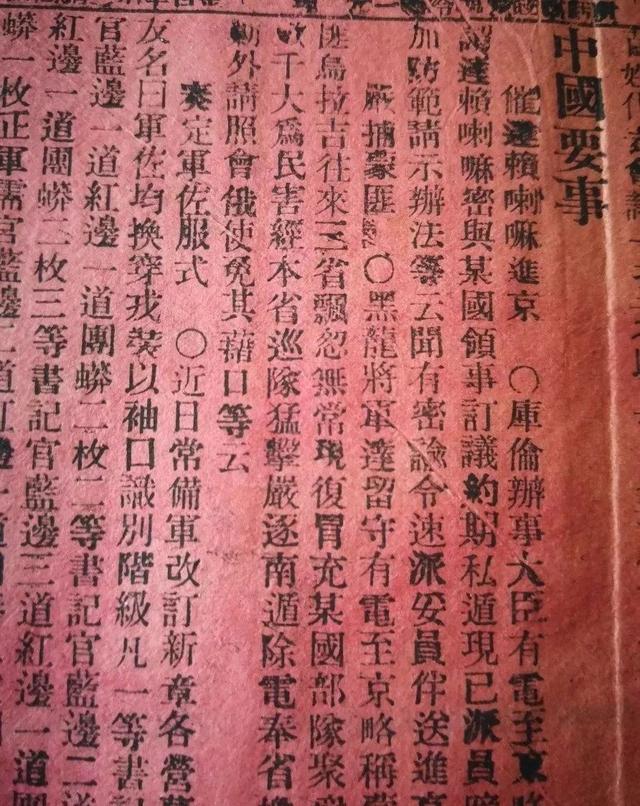 中國要事
催達賴喇嘛進京　〇庫倫辦事大臣有電至京
達賴喇嘛密與某國領事訂議約期私遁現已派員
加防範請示辦法等云聞有密諭令速派妥員伴送進京
嚴捕蒙匪　〇黑龍將軍達留守有電至京略稱蒙
匪烏拉吉往來三省飄忽無常現復冒充某國部隊聚
千大為民害經本省巡隊猛擊嚴逐南遁除電奉省
外請照會俄使免其藉口等云
定軍佐服式　〇近日常備軍改訂新章各營
友名曰軍佐均換穿戎裝以袖口識別階級凡一等書
官藍邊一道紅邊一道團蟒二枚二等書記官藍邊二
紅邊一道團蟒二枚三等書記官藍邊三道紅邊一道團
蟒一枚正軍需官藍邊二道紅